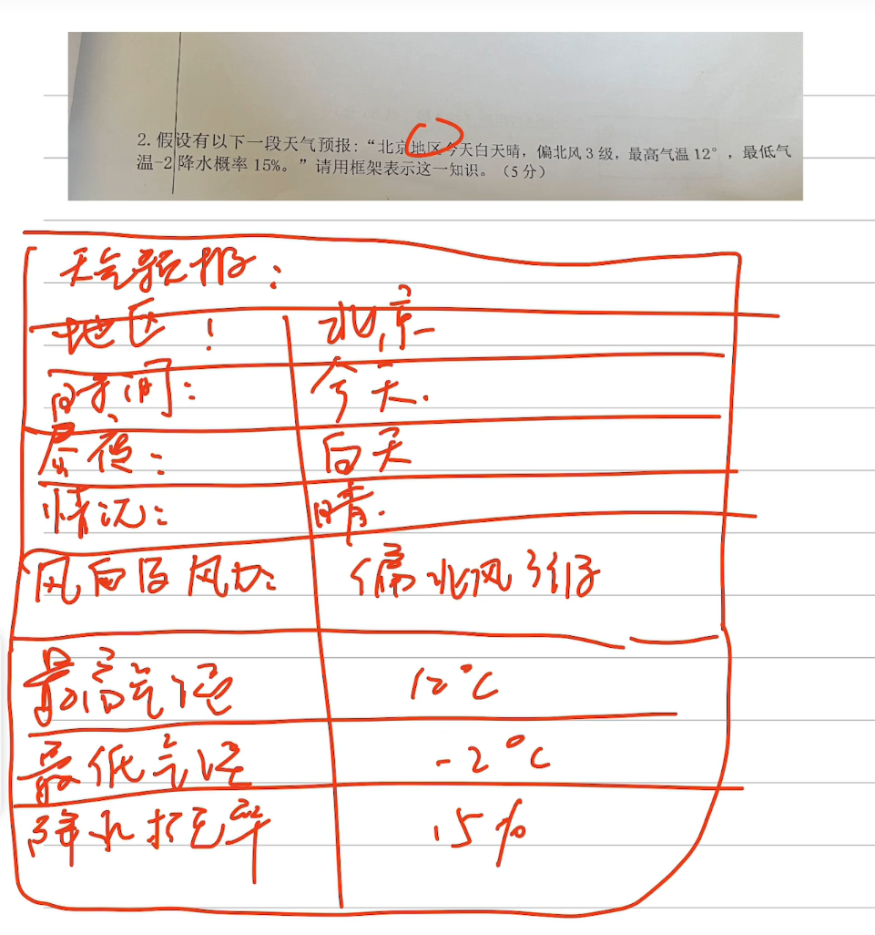 2. 假设有以下一段天气预报：“北京地区今天白天晴，偏北风 3 级，最高气温 12°，最低气
温-2 降水概率 15%。”请用框架表示这一知识。（5 分）
天气预报：
地区： 北京
时间： 今天.
昼夜： 白天
情况： 晴.
风向及风力： 偏北风3级
最高气温 12°C
最低气温 -2°C
降水概率 15%